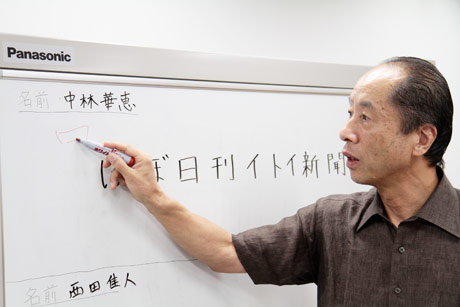 Panasonic
名前 中林華恵
ぼ日刊イトイ新聞
名前 西田佳人